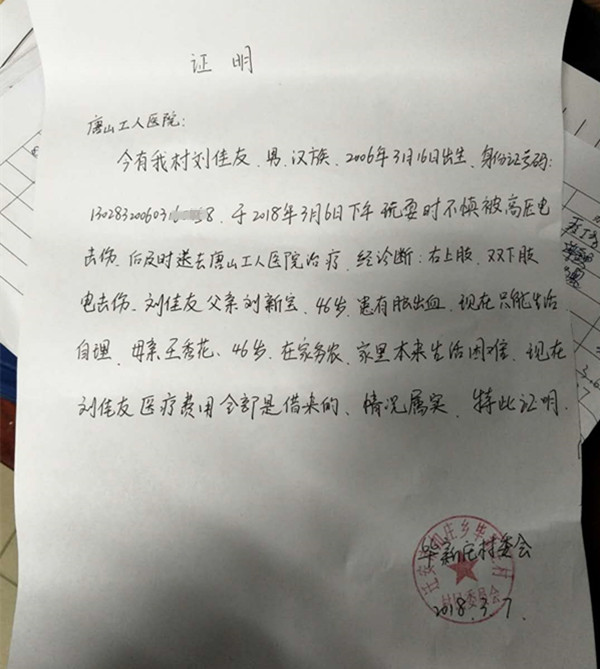 证明
唐山工人医院:
今有我村刘佳友、男、汉族、2006年3月16日出生、身份证号码:
130283200603 8、于2018年3月6日下午玩耍时不慎被高压电
击伤、后及时送去唐山工人医院治疗、经诊断:右上肢、双下肢
电击伤、刘佳友父亲刘新宝、46岁、患有脑出血、现在只能生活
自理、母亲王秀花、46岁、在家务农、家里本来生活困难、现在
刘佳友医疗费用全部是借来的、情况属实、特此证明.
毕新庄村委会
2018.3.7